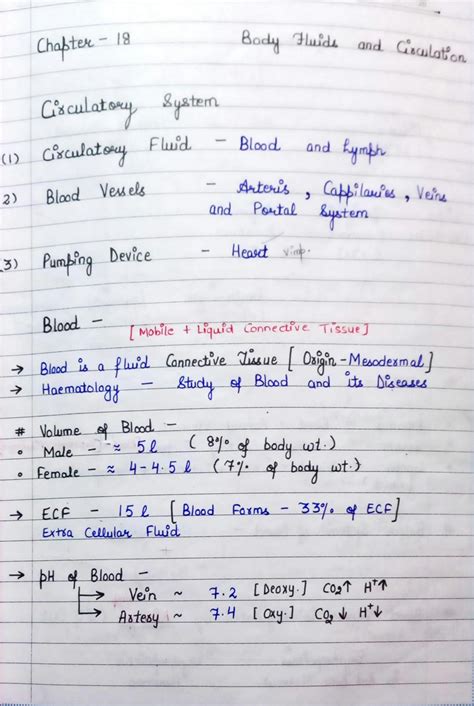 Chapter - 18 Body Fluids and Circulation
Circulatory System
(1) Circulatory Fluid - Blood and Lymph
2) Blood Vessels - Arteris, Cappilaries, Veins
and Portal System
3) Pumping Device - Heart vimp.
Blood -
[Mobile + Liquid Connective Tissue]
→ Blood is a fluid Connective Tissue [Origin - Mesodermal]
→ Haematology - Study of Blood and its Diseases
# Volume of Blood -
• Male - ≈ 5l (8% of body wt.)
• Female - ≈ 4-4.5l (7% of body wt.)
→ ECF - 15l [Blood Forms - 33% of ECF]
Extra Cellular Fluid
→ pH of Blood -
→ Vein ~ 7.2 [Deoxy.] CO2↑ H+↑
→ Artery ~ 7.4 [Oxy.] CO2↓ H+↓